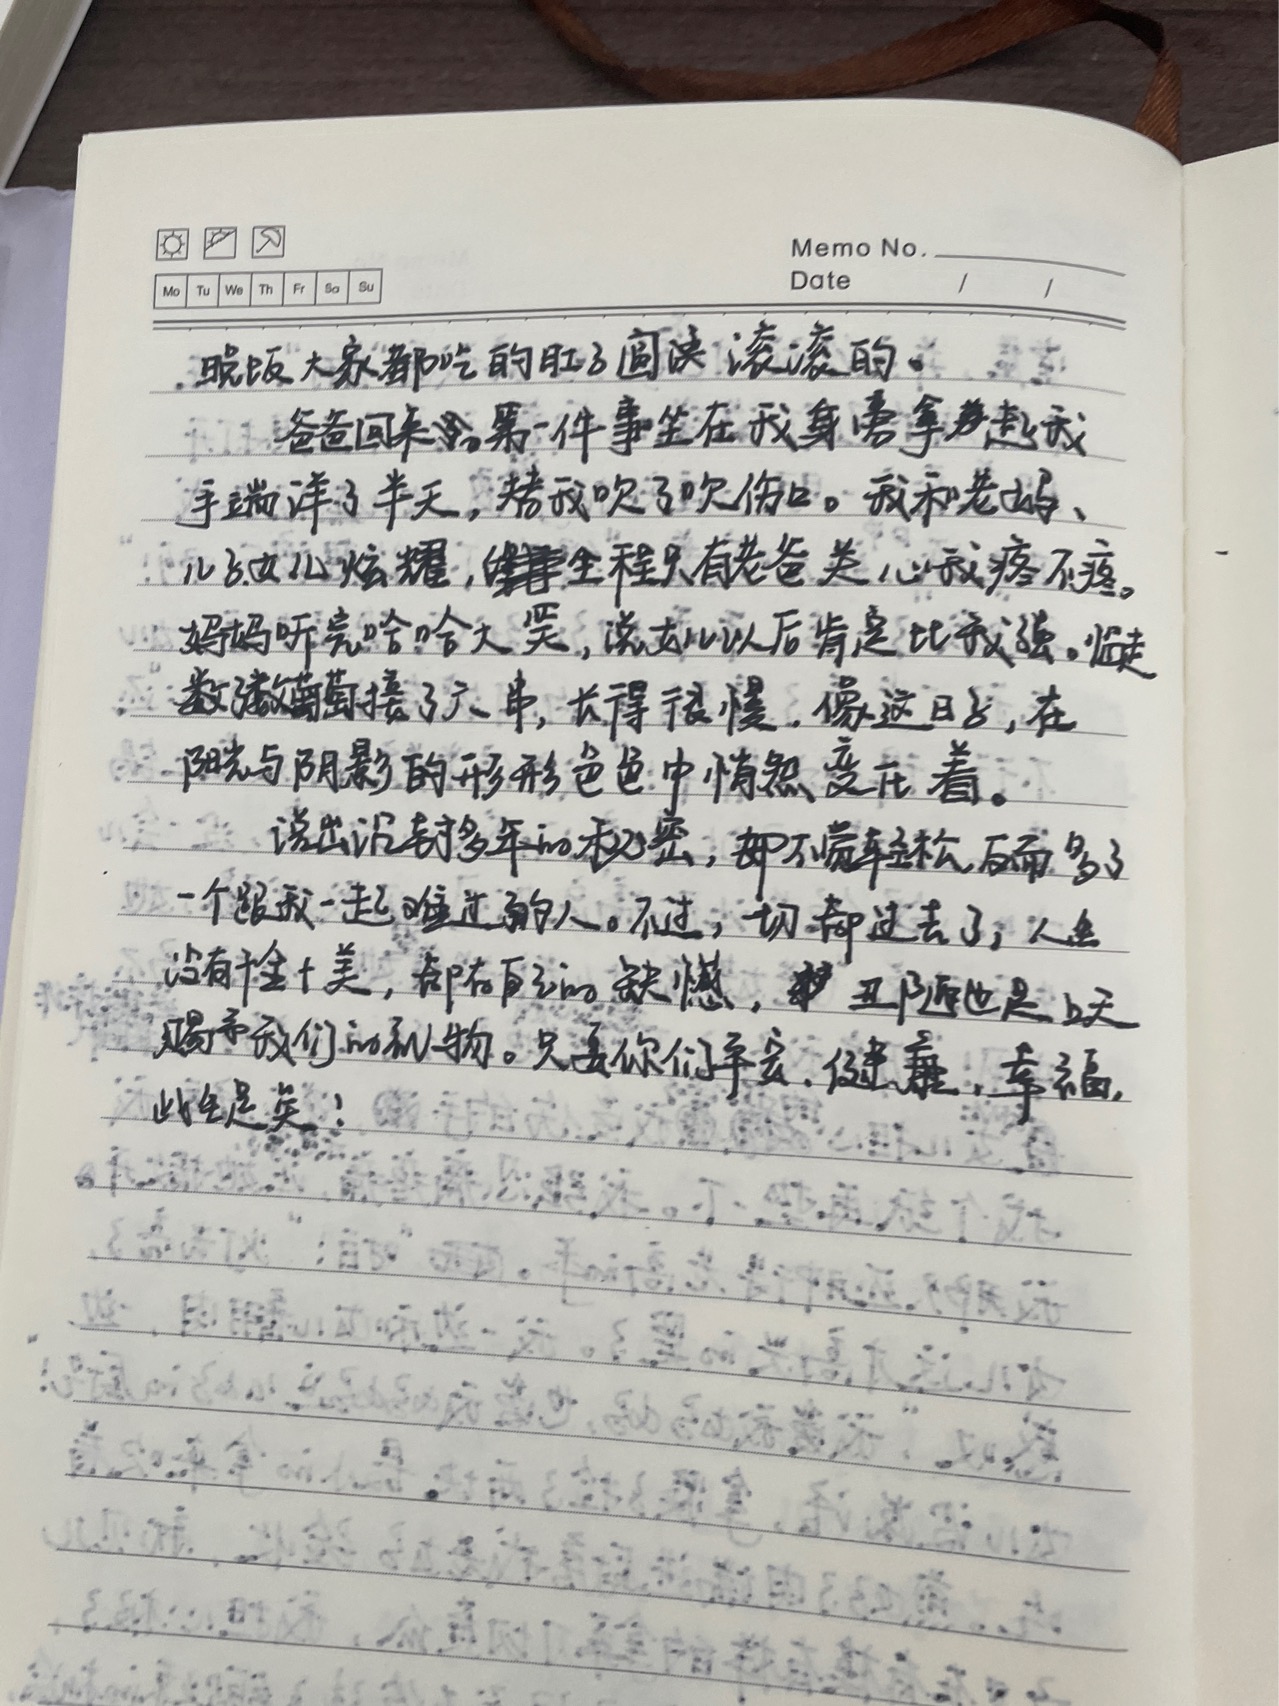 Memo No.
Date / /
Mo Tu We Th Fr Sa Su
晚饭大家都吃的肚子圆滚滚的。
爸爸回来第一件事坐在我身旁拿起我
手端详了半天，替我吹了吹伤口。我和老妈、
儿子女儿炫耀，全程只有老爸关心我疼不疼。
妈妈听完哈哈大笑，说女儿以后肯定比我强。临走
数了数葡萄接了六串，长得很慢，像这日子，在
阳光与阴影的形形色色中悄然变化着。
说出沉封多年的秘密，却不觉轻松，反而多了
一个跟我一起难过的人。不过，一切都过去了，人生
没有十全十美，都有自己的缺憾，丑陋也是上天
赐予我们的礼物。只要你们平安、健康、幸福，
此生足矣！